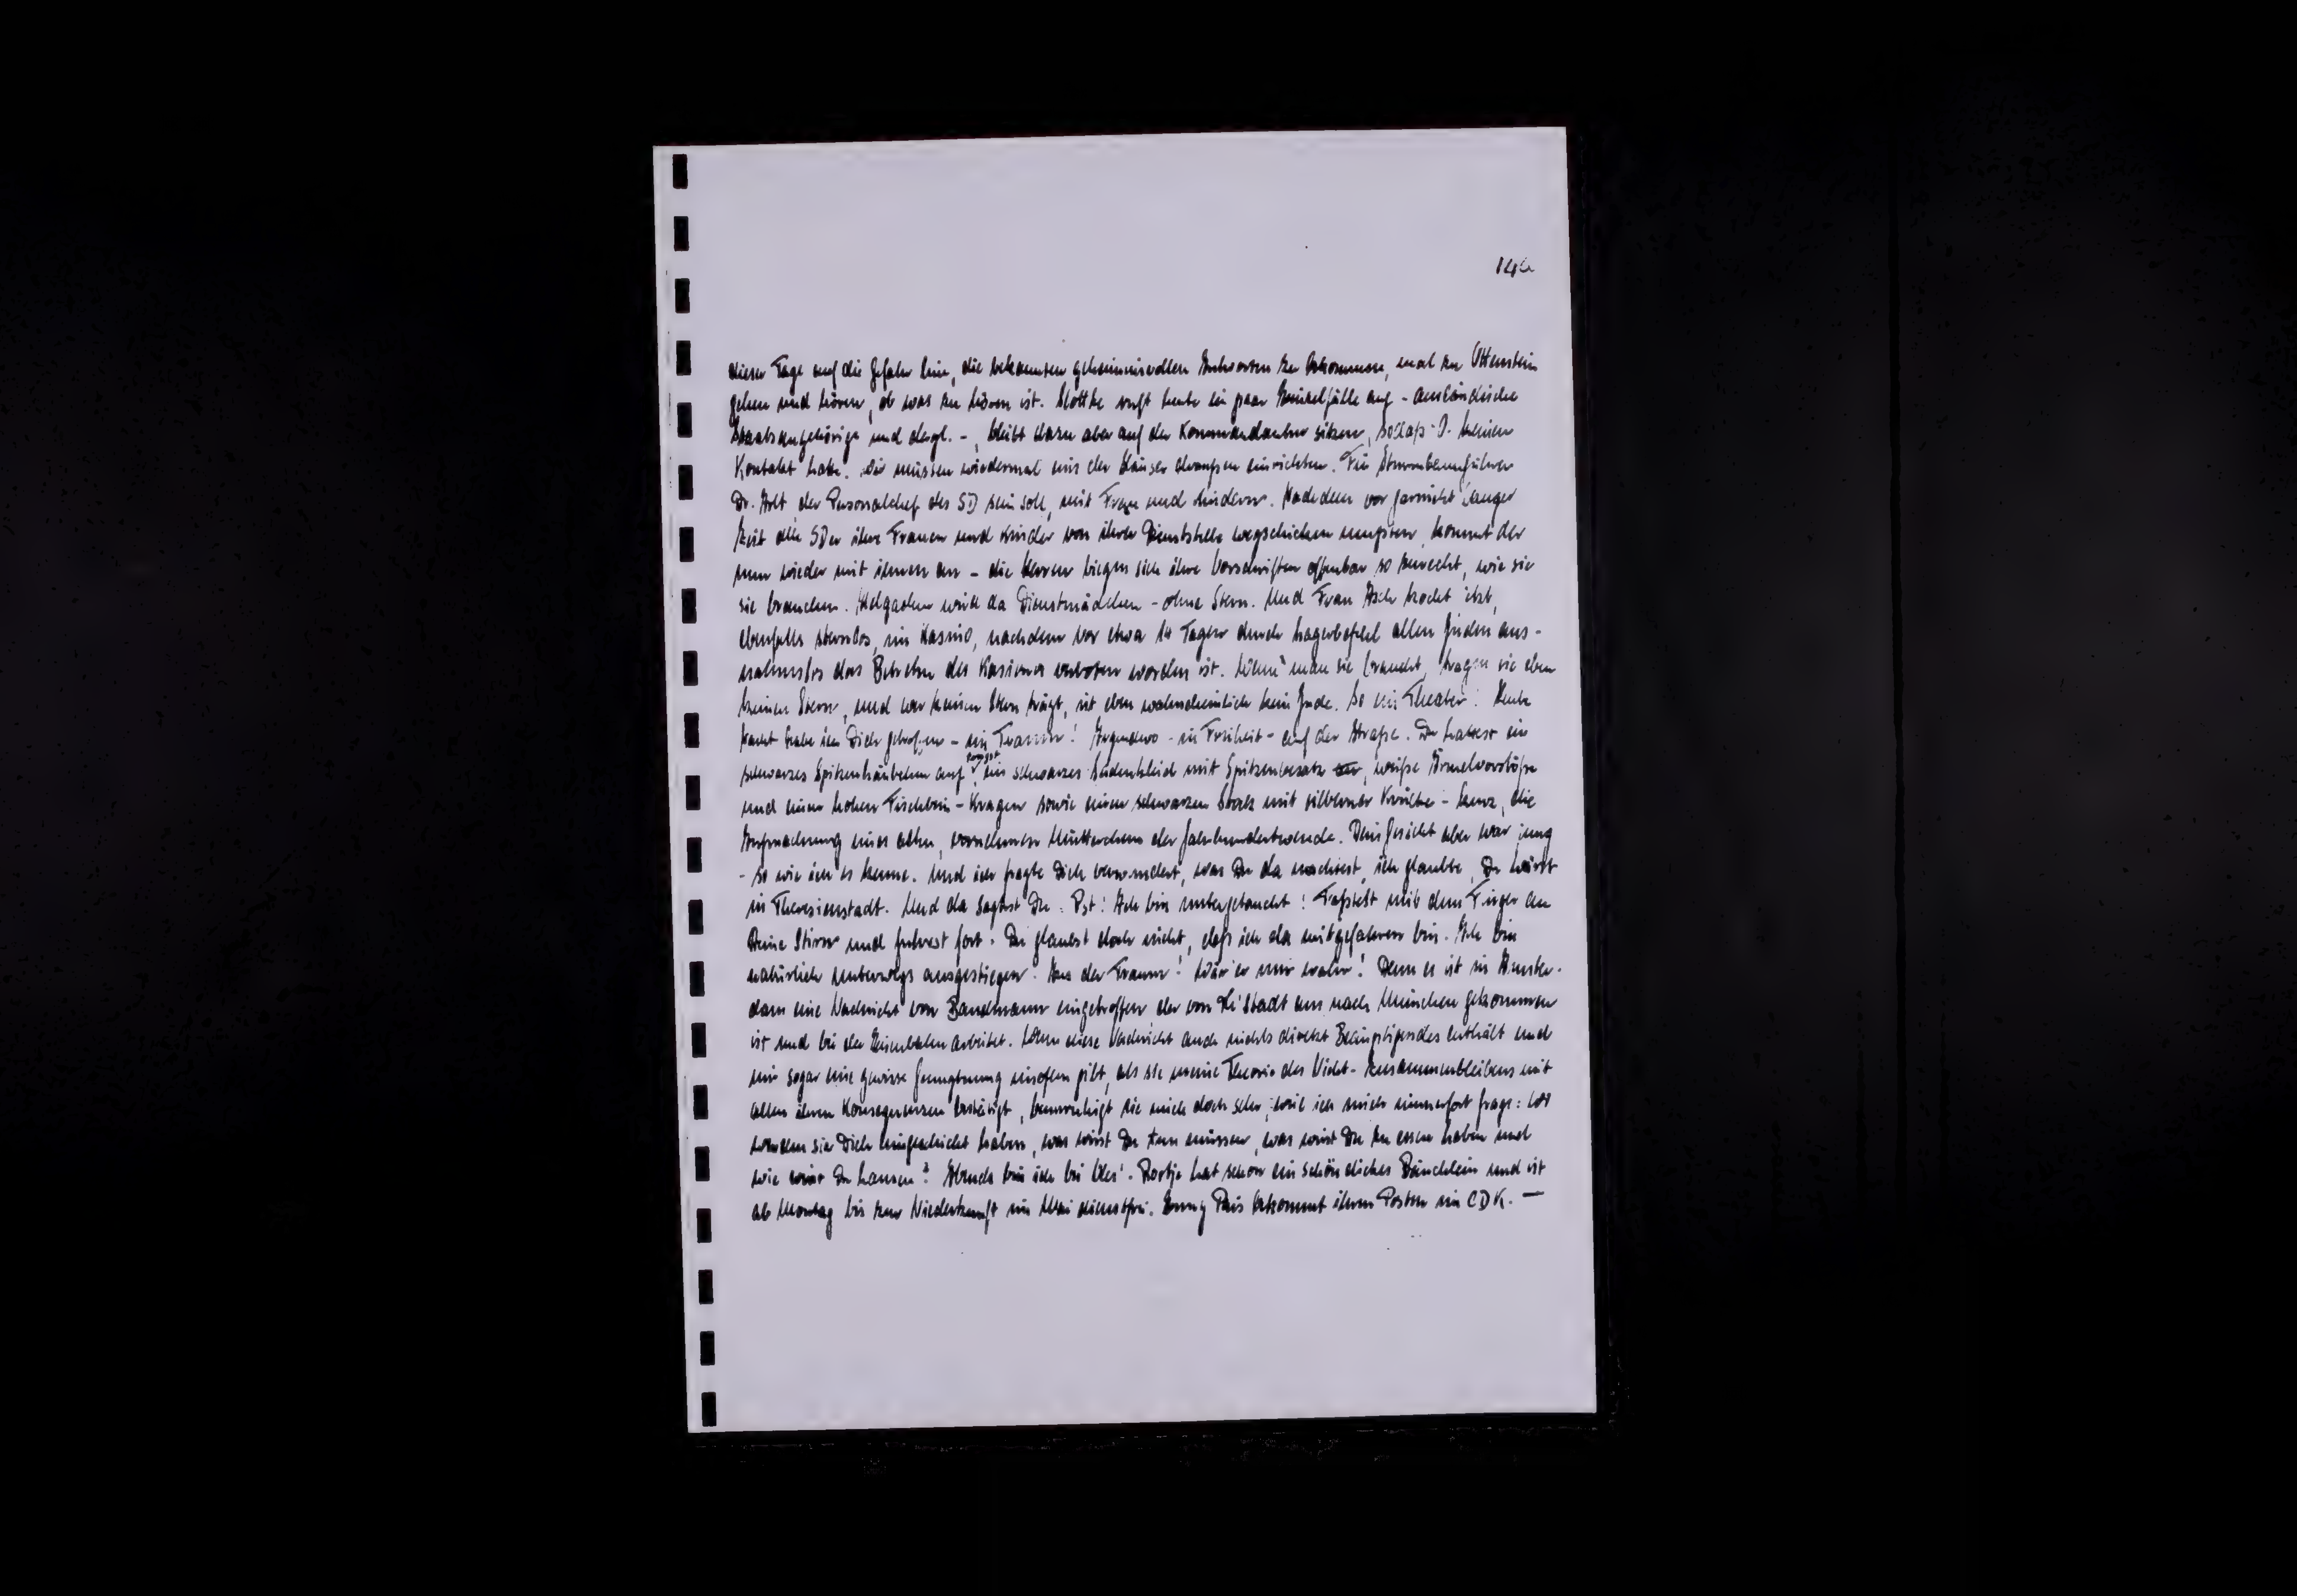 146
dieser Tage auf die Gefahr hin, die bekannten geheimnisvollen Antworten zu bekommen, mal zu Ottenstein
gehen und hören, ob was zu hören ist. Slottke ruft heute ein paar Einzelfälle auf - ausländische
Staatsangehörige und dergl. -, bleibt dazu aber auf der Kommandantur sitzen, sodaß O. keinen
Kontakt hatte. Wir müssen wiedermal eins der Häuser draußen einrichten. Für Sturmbannführer
Dr. der Personalchef des SD sein soll, mit Frau und Kindern. Nachdem vor garnicht langer
Zeit alle SDer ihre Frauen und Kinder von ihrer Dienststelle wegschicken mußten, kommt der
nun wieder mit ihnen an - die Herren biegen sich ihre Vorschriften offenbar so zurecht, wie sie
sie brauchen. wird da Dienstmädchen - ohne Stern. Und Frau Asch kocht jetzt,
ebenfalls sternlos, im Kasino, nachdem vor etwa 14 Tagen durch Lagerbefehl allen Juden aus-
nahmslos das Betreten des Kasinos verboten worden ist. Wenn man sie braucht, tragen sie eben
keinen Stern, und wer keinen Stern trägt, ist eben wahrscheinlich kein Jude. So ein Theater! Heute
Nacht habe ich Dich getroffen - im Traum! Irgendwo - in Freiheit - auf der Straße. Du hattest ein
schwarzes Spitzenhäubchen auf, trugst ein schwarzes Seidenkleid mit Spitzenbesatz, weiße Ärmelvorstöße
und einen hohen Fischbein-Kragen sowie einen schwarzen Stock mit silberner Krücke - kurz, die
Aufmachung eines alten, vornehmen Mütterchens der Jahrhundertwende. Dein Gesicht aber war jung
- so wie ich es kenne. Und ich fragte Dich verwundert, was Du da machtest, ich glaubte, Du wärst
in Theresienstadt. Und da sagtest Du: Pst! Ich bin untergetaucht! Faßtest mit dem Finger an
Deine Stirn und fuhrest fort: Du glaubst doch nicht, daß ich da mitgefahren bin. Ich bin
natürlich unterwegs ausgestiegen. der Traum! Wär er nur wahr! Denn es ist in Amster-
dam eine Nachricht von Bandmann eingetroffen, der von Th'stadt aus nach München gekommen
ist und bei der Eisenbahn arbeitet. Wenn diese Nachricht auch nichts direkt Beängstigendes enthält und
mir sogar eine gewisse Genugtuung insofern gibt, als sie meine Theorie des Nicht-Zusammenbleibens mit
allen ihren Konsequenzen bestätigt, beunruhigt sie mich doch sehr, weil ich mich immerfort frage: Wo
werden sie Dich hingeschickt haben, was wirst Du tun müssen, was wirst Du zu essen haben und
wie wirst Du hausen? Abends bin ich bei . Rootje hat schon ein schön dickes Bäuchlein und ist
ab Montag bis zur Niederkunft im Mai dienstfrei. Pais bekommt ihren Posten im CDK. —